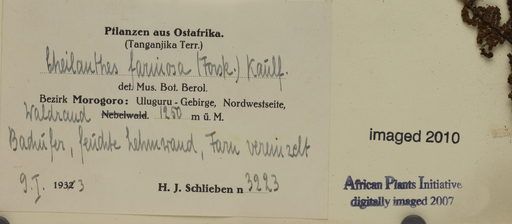 Pflanzen aus Ostafrika.
(Tanganjika Terr.)
Cheilanthes farinosa (Forsk.) Kaulf.
det. Mus. Bot. Berol.
Bezirk Morogoro: Uluguru-Gebirge, Nordwestseite,
Waldrand Nebelwald. 1250 m ü. M.
Bachufer, feuchte Lehmwand, Farn vereinzelt
9. I. 1933
H. J. Schlieben n 3223
imaged 2010
African Plants Initiative
digitally imaged 2007